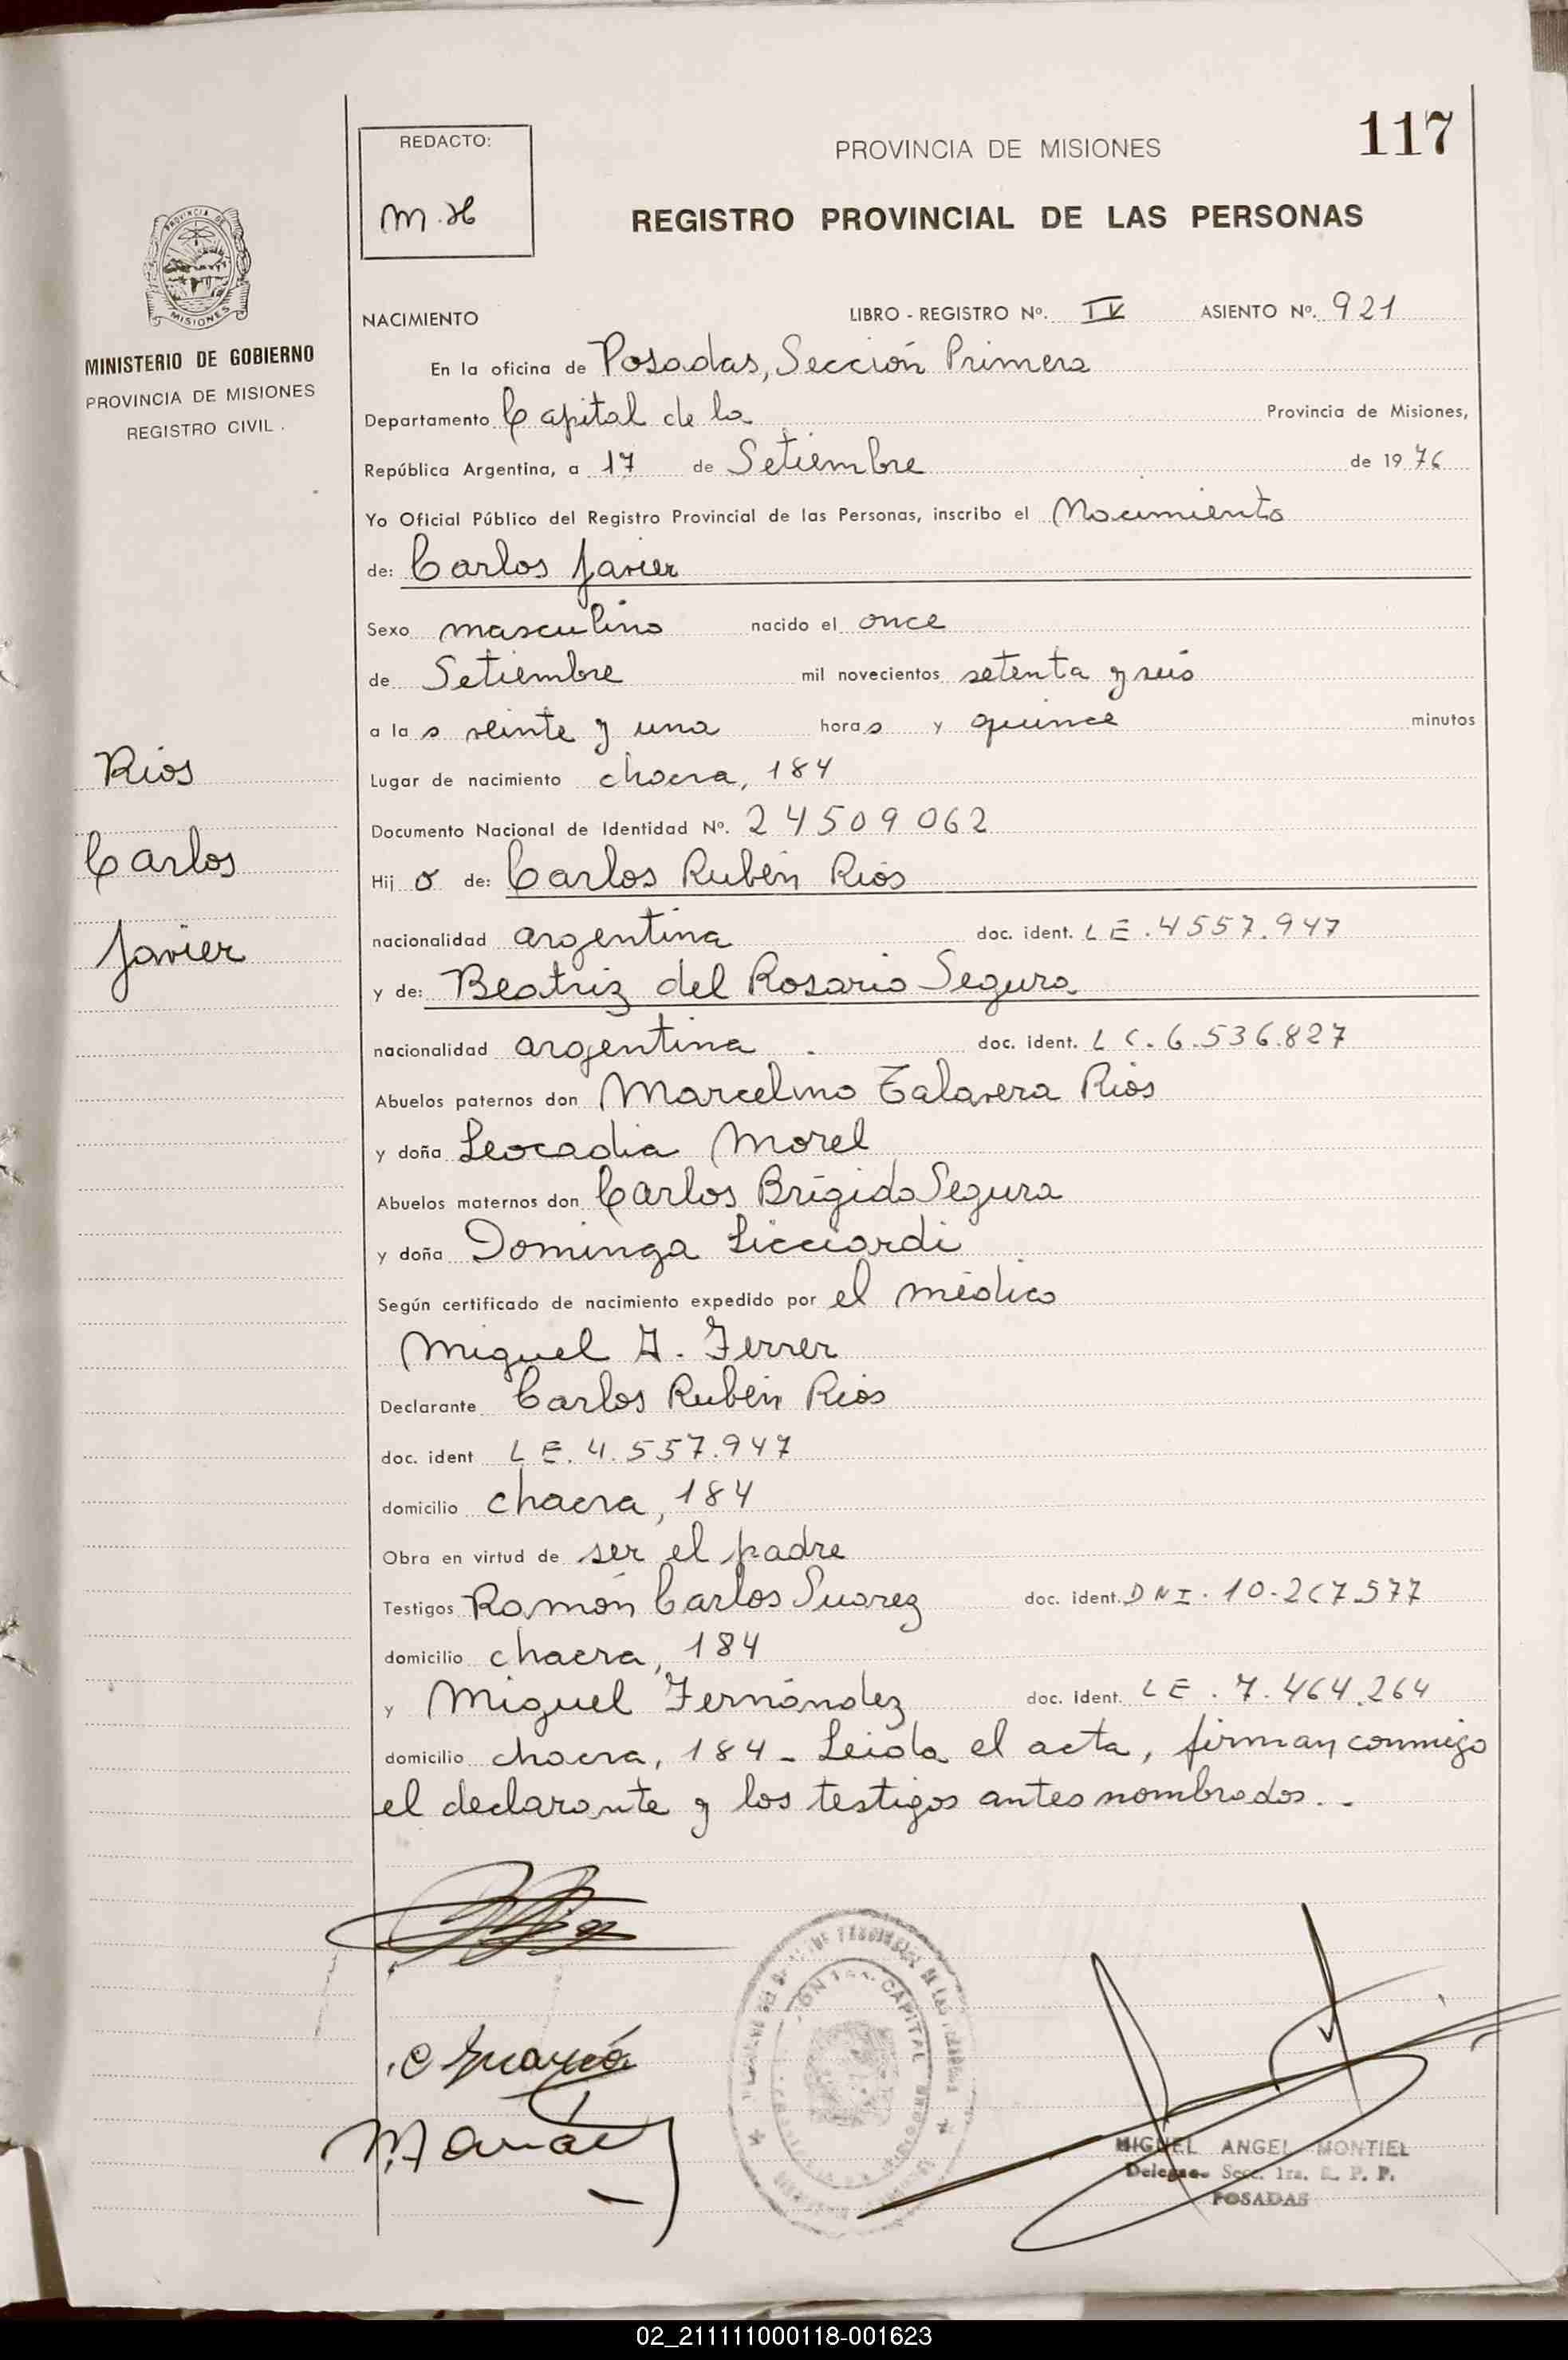 117
REDACTO:
M.H
PROVINCIA DE MISIONES
REGISTRO PROVINCIAL DE LAS PERSONAS
PROVINCIA DE
MISIONES
MINISTERIO DE GOBIERNO
PROVINCIA DE MISIONES
REGISTRO CIVIL.
NACIMIENTO LIBRO - REGISTRO Nº. IV ASIENTO Nº. 921
En la oficina de Posadas, Sección Primera
Departamento Capital de la Provincia de Misiones,
República Argentina, a 17 de Setiembre de 1976
Yo Oficial Público del Registro Provincial de las Personas, inscribo el Nacimiento
de: Carlos Javier
Sexo masculino nacido el once
de Setiembre mil novecientos setenta y seis
a las veinte y una horas y quince minutos
Lugar de nacimiento chacra, 184
Documento Nacional de Identidad Nº. 24509062
Hijo de: Carlos Rubén Ríos
nacionalidad argentina doc. ident. LE.4557.947
y de: Beatriz del Rosario Segura
nacionalidad argentina. doc. ident. LC.6.536.827
Abuelos paternos don Marcelino Talavera Ríos
y doña Leocadia Morel
Abuelos maternos don Carlos Brígido Segura
y doña Dominga Licciardi
Según certificado de nacimiento expedido por el médico
Miguel A. Ferrer
Declarante Carlos Rubén Ríos
doc. ident LE.4.557.947
domicilio chacra, 184
Obra en virtud de ser el padre
Testigos Ramón Carlos Suarez doc. ident. DNI.10-267.577
domicilio chacra, 184
y Miguel Fernández doc. ident. LE.7.464.264
domicilio chacra, 184 - Leída el acta, firman conmigo
el declarante y los testigos antes nombrados..-
Ríos
Carlos
Javier
CAPITAL
MIGUEL ANGEL MONTIEL
Delegado Secc. 1ra. R. P. P.
POSADAS
02_211111000118-001623